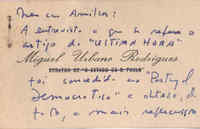 Meu caro Amílcar:
A entrevista a que se refere o
artigo do "ULTIMA HORA"
Miguel Urbano Rodrigues
REDATOR DE "O ESTADO DE S. PAULO"
foi concedida ao "Portugal
Democrático" e obteve, de
facto, a mais